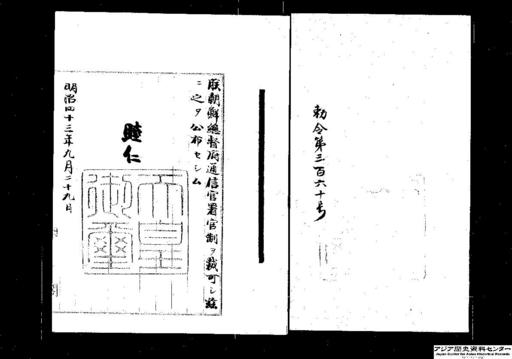 勅令第三百六十号
朕朝鮮總督府通信官署官制ヲ裁可シ茲
ニ之ヲ公布セシム
睦仁
天皇御璽
明治四十三年九月二十九日
アジア歴史資料センター
Japan Center for Asian Historical Records